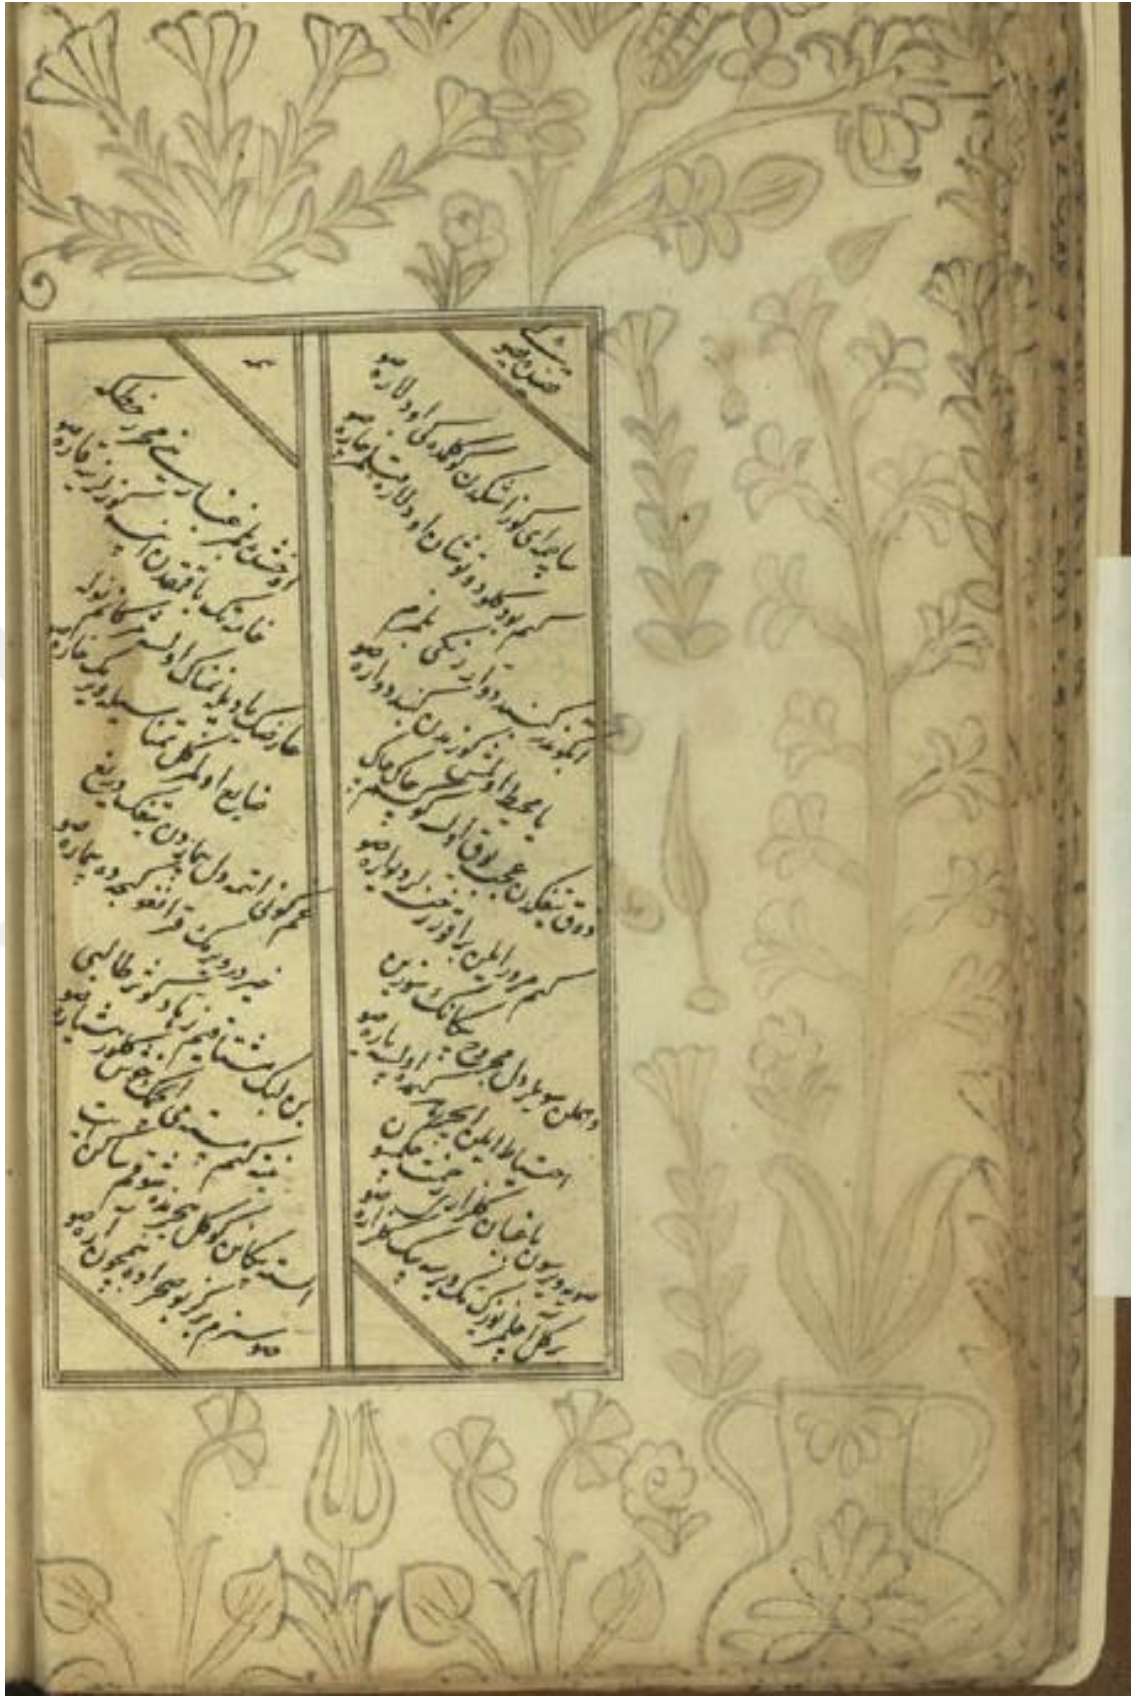 ساچمه ای کوز اشکدن کوکلمده کی اودلاره صو
کیم بو دکلو دوتشان اودلاره قیلمز چاره صو
آبکوندر کنبد دوار رنکی بلمزم
یا محیط اولمش کوزمدن کنبد دواره صو
ذوق تیغکدن عجب یوق اولسه کوکلم چاک چاک
کیم مرور ایلن براقور رخنه لر دیواره صو
وهملن سویلر دل مجروح پیکانک سوزین
احتیاط ایلن ایچر هر کیمده اولسه یاره صو
صویه ویرسون باغبان کلزاری زحمت چکمسون
بر کل آچلمز یوزک تک ویرسه بیک کلزاره صو
اوخشدا بلمز غبارینی محرر خطکه
خامه تک باقمقدن اینسه کوزلرینه قاره صو
عارضک یادیله نمناک اولسه مژکانم نوله
ضایع اولمز کل تمناسیله ویرمک خاره صو
غم کونی ایتمه دل بیماردن تیغک دریغ
خیردر ویرمک قرانقو کیجه ده بیماره صو
بن لبک مشتاقیم زهاد کوثر طالبی
نته کیم مسته می ایچمک خوش کلور هشیاره صو
استه پیکانن کوکل هجرنده شوقم ساکن ایت
صوسزم بر کز بو صحراده بنمچون آره صو